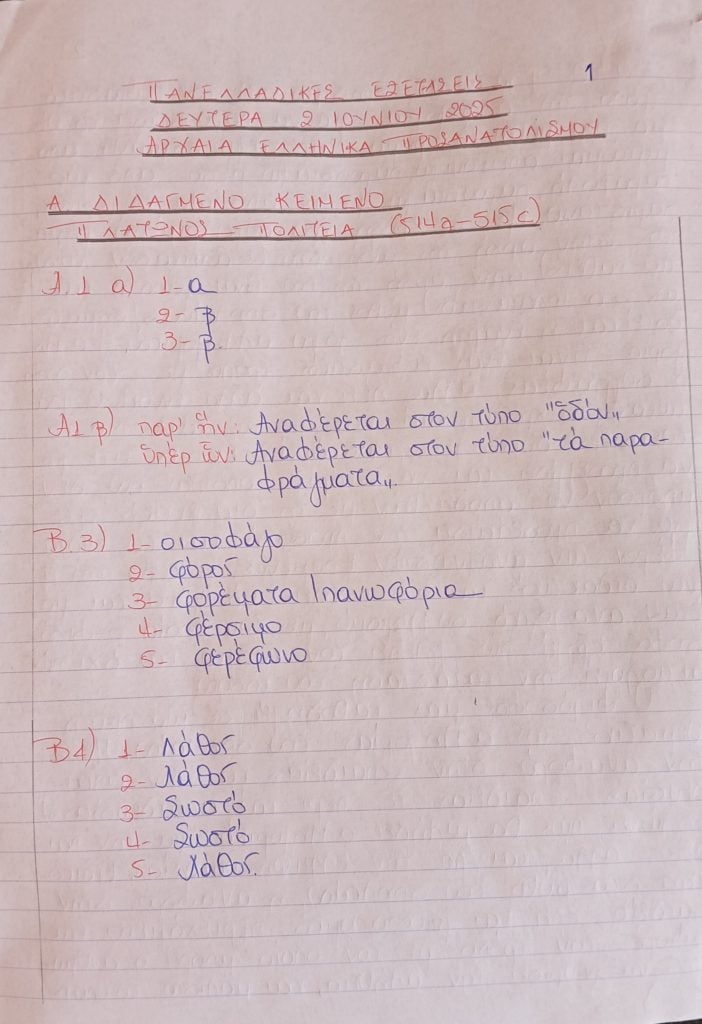 1
ΠΑΝΕΛΛΑΔΙΚΕΣ ΕΞΕΤΑΣΕΙΣ
ΔΕΥΤΕΡΑ 2 ΙΟΥΝΙΟΥ 2025
ΑΡΧΑΙΑ ΕΛΛΗΝΙΚΑ ΠΡΟΣΑΝΑΤΟΛΙΣΜΟΥ
Α ΔΙΔΑΓΜΕΝΟ ΚΕΙΜΕΝΟ
ΠΛΑΤΩΝΟΣ ΠΟΛΙΤΕΙΑ (514a-515c)
Α.1 α) 1- α
2- β
3- β.
Α1 β) παρ' ἥν: Αναφέρεται στον τύπο "ὁδόν„
ὑπέρ ὧν: Αναφέρεται στον τύπο "τὰ παρα-
φράγματα„.
Β.3) 1- οισοφάγο
2- φόρος
3- φορέματα / πανωφόρια
4- φέρσιμο
5- φερέφωνο
Β4) 1- Λάθος
2- Λάθος
3- Σωστό
4- Σωστό
5- Λάθος.